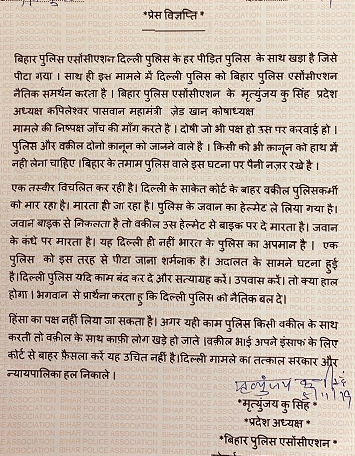 *प्रेस विज्ञप्ति*
बिहार पुलिस एसोंसीएशन दिल्ली पुलिस के हर पीड़ित पुलिस के साथ खड़ा है जिसे
पीटा गया । साथ ही इस मामले में दिल्ली पुलिस को बिहार पुलिस एसोंसीएशन
नैतिक समर्थन करता है । बिहार पुलिस एसोंसीएशन के मृत्युंजय कु सिंह प्रदेश
अध्यक्ष कपिलेश्वर पासवान महामंत्री ज़ेड खान कोषाध्यक्ष
मामले की निष्पक्ष जाँच की माँग करते है । दोषी जो भी पक्ष हो उस पर करवाई हो ।
पुलिस और वकील दोनो क़ानून को जानने वाले है । किसी को भी क़ानून को हाथ में
नही लेना चाहिए ।बिहार के तमाम पुलिस वाले इस घटना पर पैनी नज़र रखे है ।
एक तस्वीर विचलित कर रही है। दिल्ली के साकेत कोर्ट के बाहर वकील पुलिसकर्मी
को मार रहा है। मारता ही जा रहा है। पुलिस के जवान का हेल्मेट ले लिया गया है।
जवान बाइक से निकलता है तो वकील उस हेल्मेट से बाइक पर दे मारता है। जवान
के कंधे पर मारता है। यह दिल्ली ही नहीं भारत के पुलिस का अपमान है । एक
पुलिस को इस तरह से पीटा जाना शर्मनाक है। अदालत के सामने घटना हुई
है।दिल्ली पुलिस यदि काम बंद कर दे और सत्याग्रह करें। उपवास करें। तो क्या हाल
होगा । भगवान से प्रार्थना करता हु कि दिल्ली पुलिस को नैतिक बल दे।
हिंसा का पक्ष नहीं लिया जा सकता है। अगर यही काम पुलिस किसी वकील के साथ
करती तो वकील के साथ काफ़ी लोग खड़े हो जाते ।वक़ील भाई अपने इंसाफ के लिए
कोर्ट से बाहर फ़ैसला करें यह उचित नहीं है।दिल्ली मामले का तत्काल सरकार और
न्यायपालिका हल निकाले ।
मृत्युंजय कु
*मृत्युंजय कु सिंह*
*प्रदेश अध्यक्ष*
*बिहार पुलिस एसोंसीएशन*